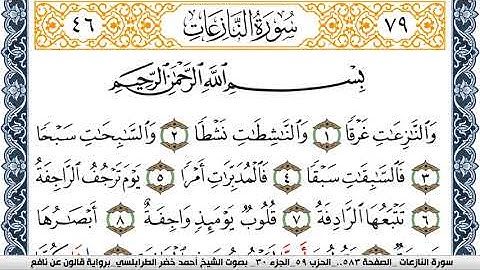 ٧٩ سُورَةُ النَّازِعَاتِ ٤٦
بِسْمِ اللَّهِ الرَّحْمَٰنِ الرَّحِيمِ
وَالنَّٰزِعَٰتِ غَرْقًا ١ وَالنَّٰشِطَٰتِ نَشْطًا ٢ وَالسَّٰبِحَٰتِ سَبْحًا
٣ فَالسَّٰبِقَٰتِ سَبْقًا ٤ فَالْمُدَبِّرَٰتِ أَمْرًا ٥ يَوْمَ تَرْجُفُ الرَّاجِفَةُ
٦ تَتْبَعُهَا الرَّادِفَةُ ٧ قُلُوبٌ يَوْمَئِذٍ وَاجِفَةٌ ٨ أَبْصَٰرُهَا
سورة النازعات _ الصفحة ٥٨٣_ الحزب ٥٩_ الجزء ٣٠_ بصوت الشيخ أحمد خضر الطرابلسي _برواية قالون عن نافع